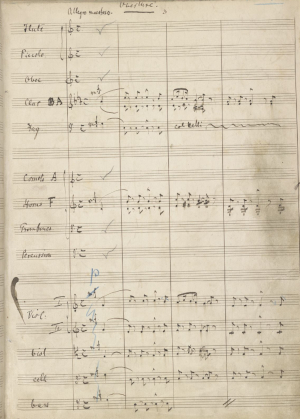 Overture.
Allegro maestoso.
Flute
Piccolo
Oboe
Clar A
Fag
col Celli
Cornets A
Horns F
Trombones
Percussion
I
Viol.
II
Viol
Cello
Basso